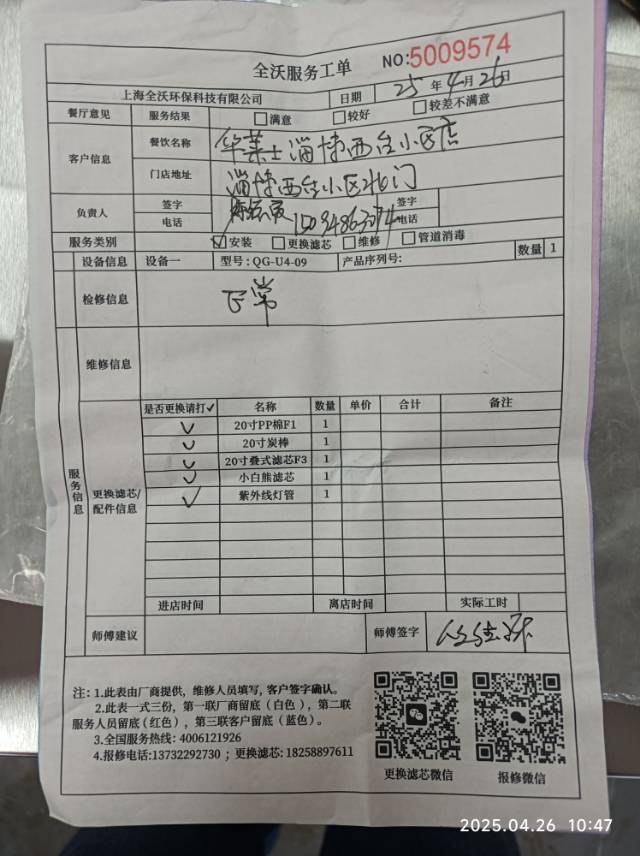 全沃服务工单 NO:5009574
上海全沃环保科技有限公司 日期 25年4月26日
餐厅意见 服务结果 □满意 □较好 □较差不满意
客户信息 餐饮名称 华莱士淄博西台小区店
门店地址 淄博西台小区北门
负责人 签字 签字
电话 电话
服务类别 ☑安装 □更换滤芯 □维修 □管道消毒
设备信息 设备一 型号:QG-U4-09 产品序列号: 数量 1
检修信息 正常
维修信息
服务信息
更换滤芯/配件信息
是否更换请打✓ 名称 数量 单价 合计 备注
✓ 20寸PP棉F1 1
✓ 20寸炭棒 1
✓ 20寸叠式滤芯F3 1
✓ 小白熊滤芯 1
✓ 紫外线灯管 1
进店时间 离店时间 实际工时
师傅建议 师傅签字
注:1.此表由厂商提供,维修人员填写,客户签字确认。
2.此表一式三份,第一联厂商留底(白色),第二联
服务人员留底(红色),第三联客户留底(蓝色)。
3.全国服务热线:4006121926
4.报修电话:13732292730;更换滤芯:18258897611
更换滤芯微信 报修微信
2025.04.26 10:47